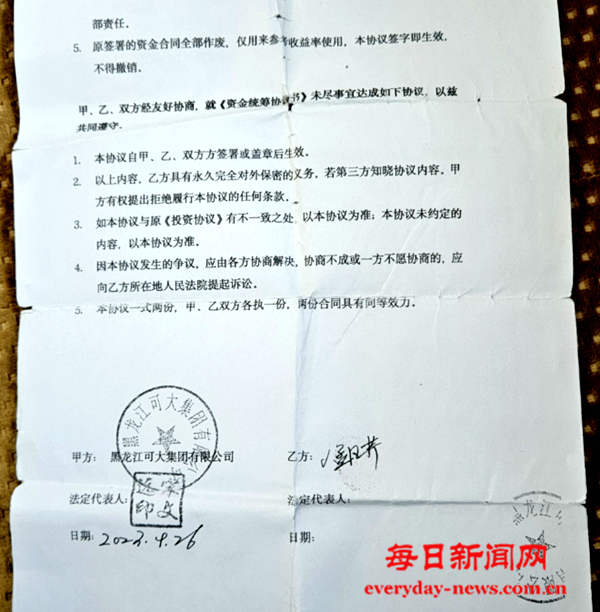 部责任。
5. 原签署的资金合同全部作废,仅用来参考收益率使用,本协议签字即生效,
不得撤销。
甲、乙、双方经友好协商,就《资金统筹协议书》未尽事宜达成如下协议,以兹
共同遵守。
1. 本协议自甲、乙、双方方签署或盖章后生效。
2. 以上内容,乙方具有永久完全对外保密的义务,若第三方知晓协议内容。甲
方有权提出拒绝履行本协议的任何条款。
3. 如本协议与原《投资协议》有不一致之处,以本协议为准;本协议未约定的
内容,以本协议为准。
4. 因本协议发生的争议,应由各方协商解决,协商不成或一方不愿协商的,应
向乙方所在地人民法院提起诉讼。
5. 本协议一式两份,甲、乙双方各执一份,两份合同具有同等效力。
黑龙江可大集团有限公司
甲方: 黑龙江可大集团有限公司 乙方:
法定代表人: 法定代表人:
印文
黑龙江
日期: 2023.4.26 日期:
每日新闻网
everyday-news.com.cn